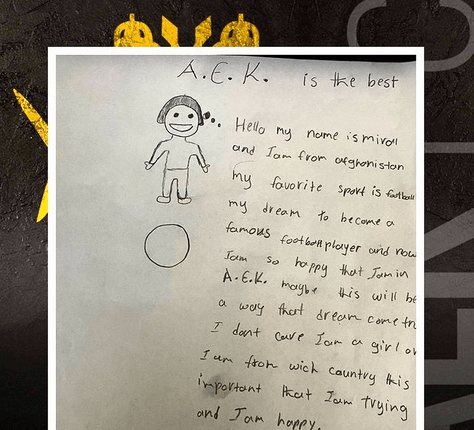 A.E.K. is the best
Hello my name is
and Iam from afghanistan
my favorite sport is football
my dream to become a
famous footballplayer and now
Iam so happy that Iam in
A.E.K. maybe this will be
a way that dream come
I dont care Iam a girl or
Iam from wich cauntry this
important that Iam trying
and Iam happy.